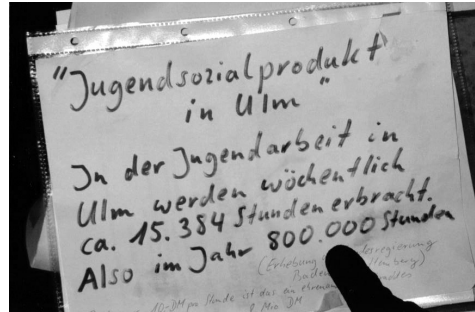 "Jugendsozialprodukt
in Ulm"
In der Jugendarbeit in
Ulm werden wöchentlich
ca. 15.384 Stunden erbracht.
Also im Jahr 800.000 Stunden
(Erhebung
Baden
10,-DM pro Stunde ist das ein
Mio DM